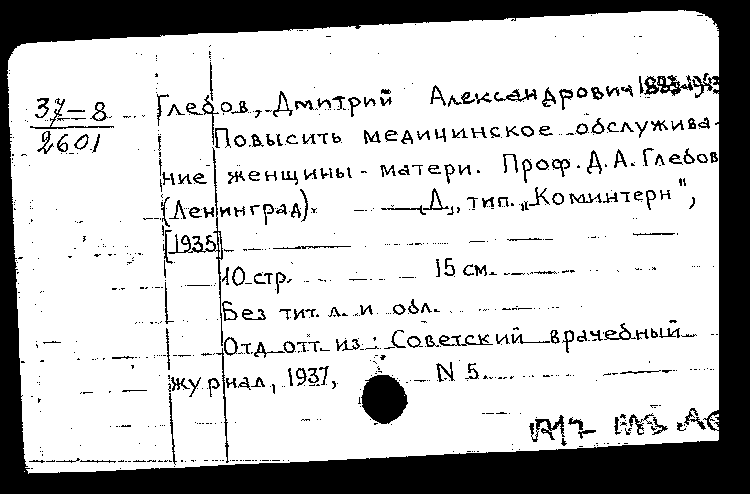 37-8
2601
Глебов, Дмитрий Александрович 1883-1943
Повысить медицинское обслужива-
ние женщины-матери. Проф. Д. А. Глебов
(Ленинград). — [Л], тип. „Коминтерн",
[1935]
10 стр. 15 см.
Без тит. л. и обл.
Отд отт. из: Советский врачебный
журнал, 1937, N 5.